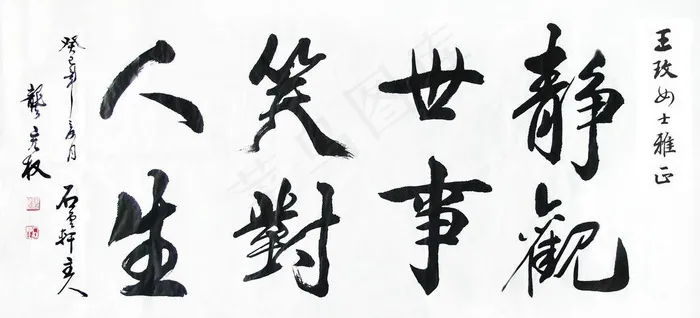 王玫女士雅正
靜觀
世事
笑對
人生
癸巳年
月
石雲軒主人
龔